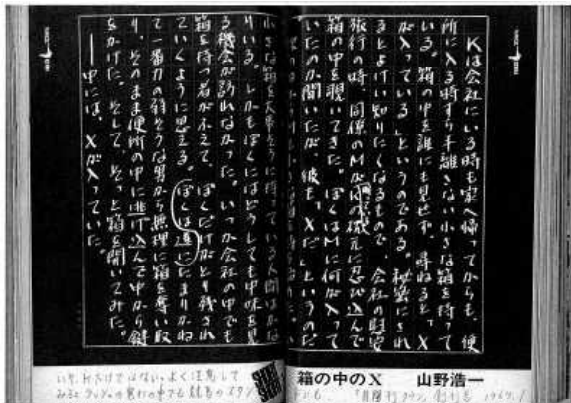 Kは会社にいる時も家へ帰ってからも、便
所に入る時すら手離さない小さな箱を持って
いる。箱の中を誰にも見せず、尋ねると「X
が入っている」というのである。秘密にされ
るとよけい知りたくなるもので、会社の慰安
旅行の時、同僚のMがKの枕元に忍び込んで
箱の中を覗いてきた。ぼくはMに何が入って
いたのか聞いたが、彼も「Xだ」というのだ
小さな箱を大事そうに持っている人間はかな
りいる。しかもぼくにはどうしても中味を見
る機会が訪れなかった。いつか会社の中でも
箱を持つ者がふえて ぼくだけがとり残され
ていくように思える。ぼくは遂にたまりかね
て一番力の弱そうな男から無理に箱を奪い取
り、そのまま便所の中に逃げ込んで中から鍵
をかけた。そして、そっと箱を開いてみた。
――中には、Xが入っていた。
箱の中のX 山野浩一
だけではない。よく注意して
みると